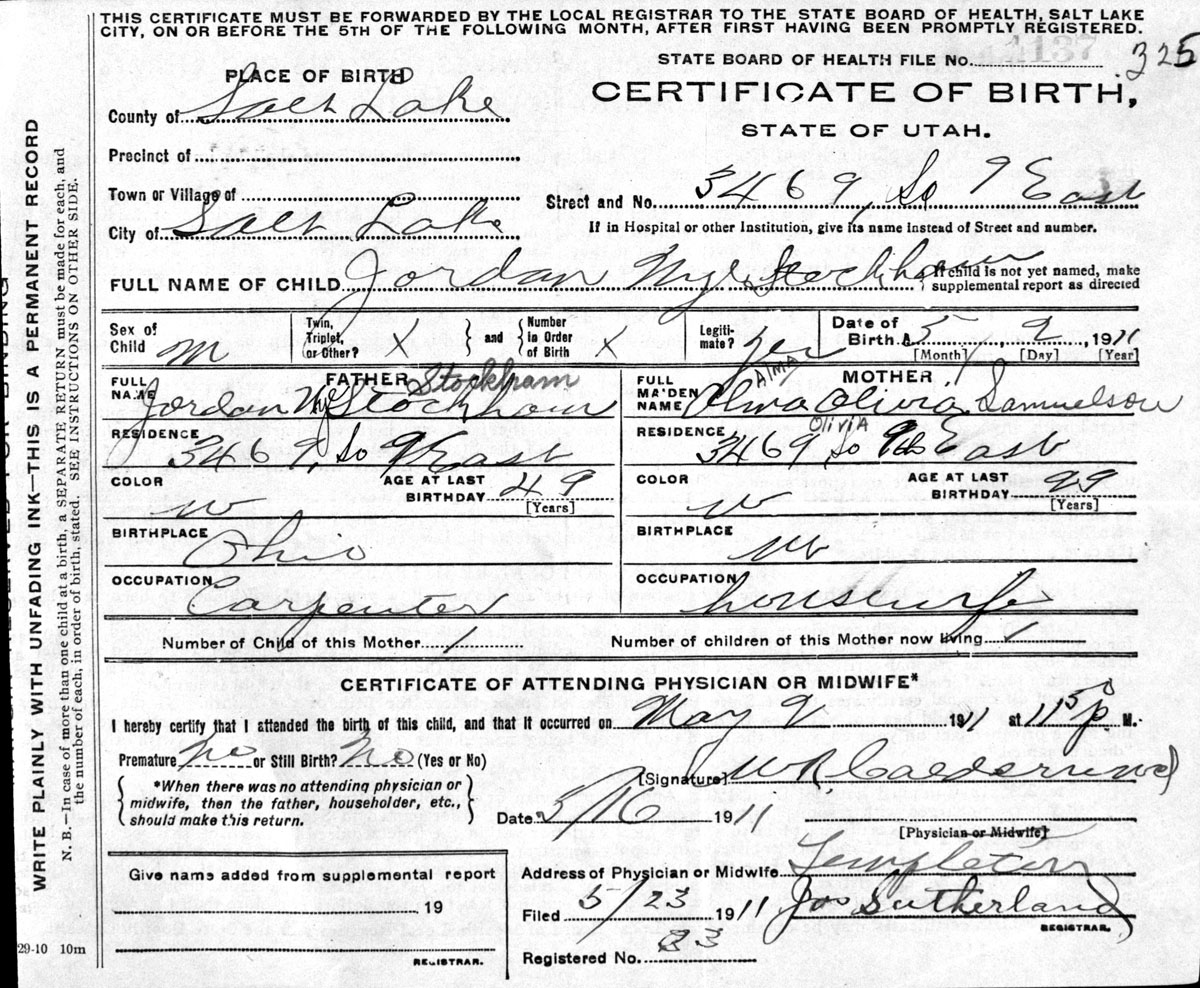 THIS CERTIFICATE MUST BE FORWARDED BY THE LOCAL REGISTRAR TO THE STATE BOARD OF HEALTH, SALT LAKE
CITY, ON OR BEFORE THE 5TH OF THE FOLLOWING MONTH, AFTER FIRST HAVING BEEN PROMPTLY REGISTERED.
STATE BOARD OF HEALTH FILE No. 325
PLACE OF BIRTH
CERTIFICATE OF BIRTH,
County of Salt Lake
STATE OF UTAH.
Precinct of
Town or Village of
Street and No. 3469, So 9 East
City of Salt Lake
If in Hospital or other Institution, give its name instead of Street and number.
FULL NAME OF CHILD Jordan Nye Stockham
If child is not yet named, make supplemental report as directed
Sex of Child M
Twin, Triplet, or Other? X and Number in Order of Birth X
Legitimate? yes
Date of Birth 5 9 1911
[Month] [Day] [Year]
FATHER Stockham
FULL NAME Jordan Nye Stockham
MOTHER
ALMA
FULL MAIDEN NAME Olivia Samuelson
OliviA
RESIDENCE 3469, So 9 East
RESIDENCE 3469 So East
COLOR W
AGE AT LAST BIRTHDAY 49
[Years]
COLOR W
AGE AT LAST BIRTHDAY
[Years]
BIRTHPLACE Ohio
BIRTHPLACE
OCCUPATION Carpenter
OCCUPATION housewife
Number of Child of this Mother 1
Number of children of this Mother now living 1
CERTIFICATE OF ATTENDING PHYSICIAN OR MIDWIFE*
I hereby certify that I attended the birth of this child, and that it occurred on May 9 1911 at 1150 P M.
Premature No or Still Birth? No (Yes or No)
[Signature] W R Calderwood
*When there was no attending physician or midwife, then the father, householder, etc., should make this return.
Date 5/16 1911
[Physician or Midwife]
Give name added from supplemental report
Address of Physician or Midwife Templeton
19
Filed 5/23 1911 Jos Sutherland
REGISTRAR.
Registered No.
REGISTRAR.
29-10 10m
WRITE PLAINLY WITH UNFADING INK—THIS IS A PERMANENT RECORD
N. B.—In case of more than one child at a birth, a SEPARATE RETURN must be made for each, and
the number of each, in order of birth, stated. SEE INSTRUCTIONS ON OTHER SIDE.